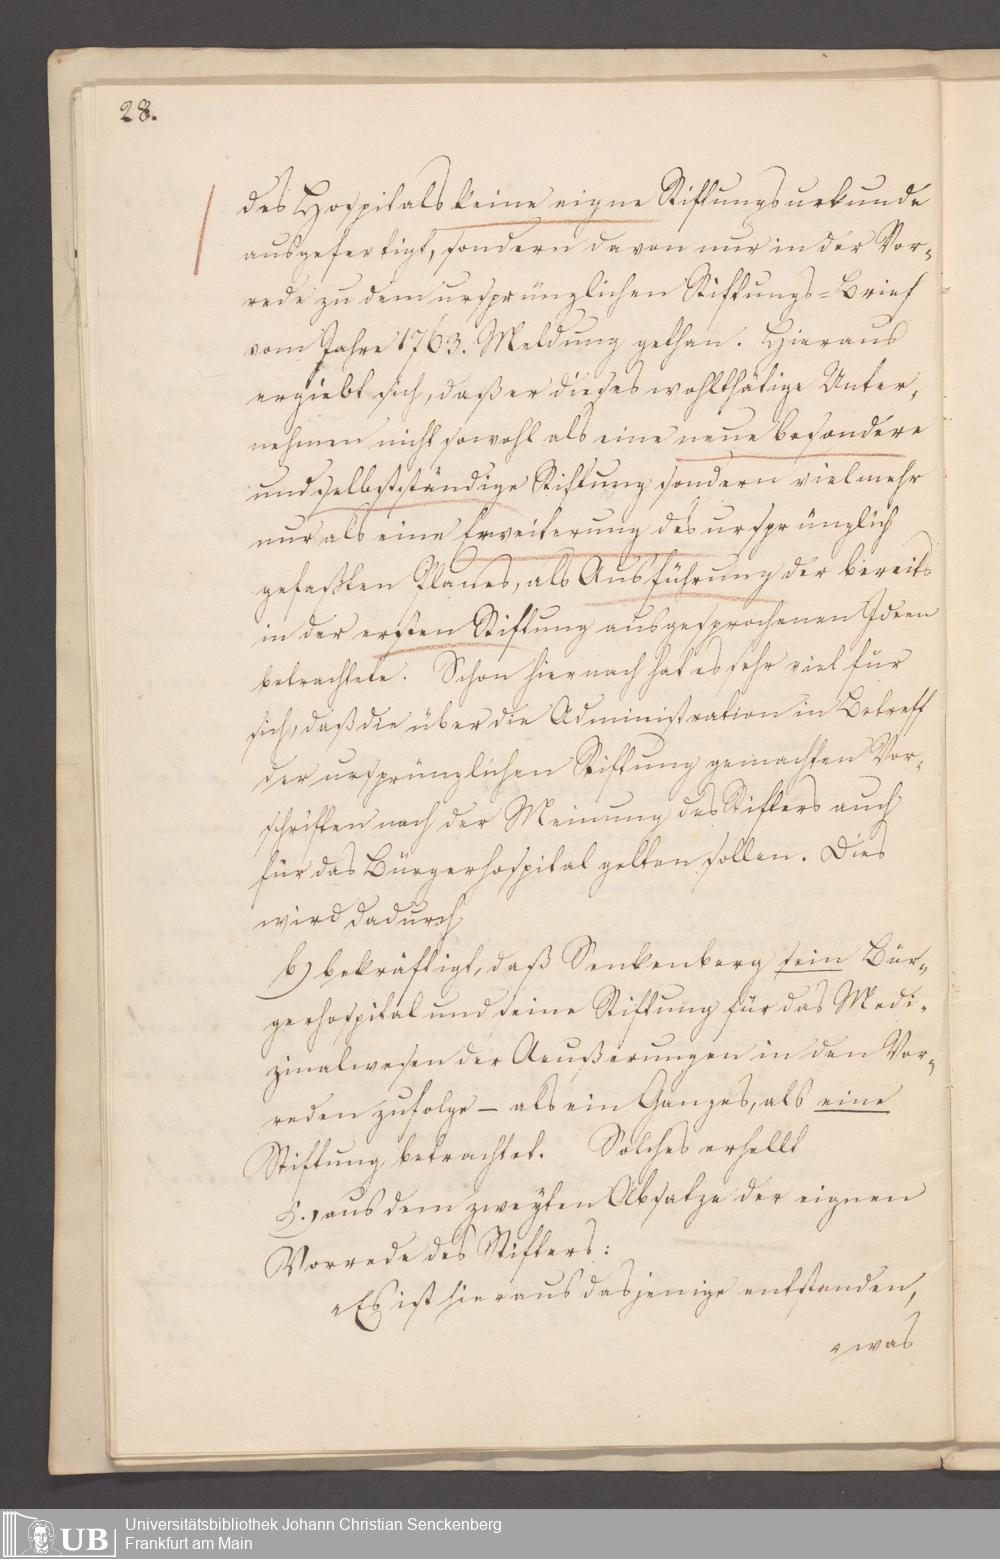 28.
des Hospitals keine eigne Stiftungsurkunde
ausgefertigt, sondern davon nur in der Vor-
rede zu dem ursprünglichen Stiftungs-Brief
vom Jahre 1763. Meldung gethan. Hieraus
ergiebt sich, daß er dieses wohlthätige Unter-
nehmen nicht sowohl als eine neue besondere
und selbstständige Stiftung sondern vielmehr
nur als eine Erweiterung des ursprünglich
gefaßten Planes, als Ausführung der bereits
in der ersten Stiftung ausgesprochenen Ideen
betrachtete. Schon hiernach hat es sehr viel für
sich, daß die über die Administration in Betreff
der ursprünglichen Stiftung gemachten Vor-
schriften nach der Meinung des Stifters auch
für das Bürgerhospital gelten sollen. Dies
wird dadurch
b) bekräftigt, daß Senkenberg sein Bür-
gerhospital und seine Stiftung für das Medi-
zinalwesen der Aeußerungen in den Vor-
reden zufolge – als ein Ganzes, als eine
Stiftung betrachtet. Solches erhellt
1., aus dem zweyten Absatze der eignen
Vorrede des Stifters:
„Es ist hieraus dasjenige entstanden,
„was
UB
Universitätsbibliothek Johann Christian Senckenberg
Frankfurt am Main